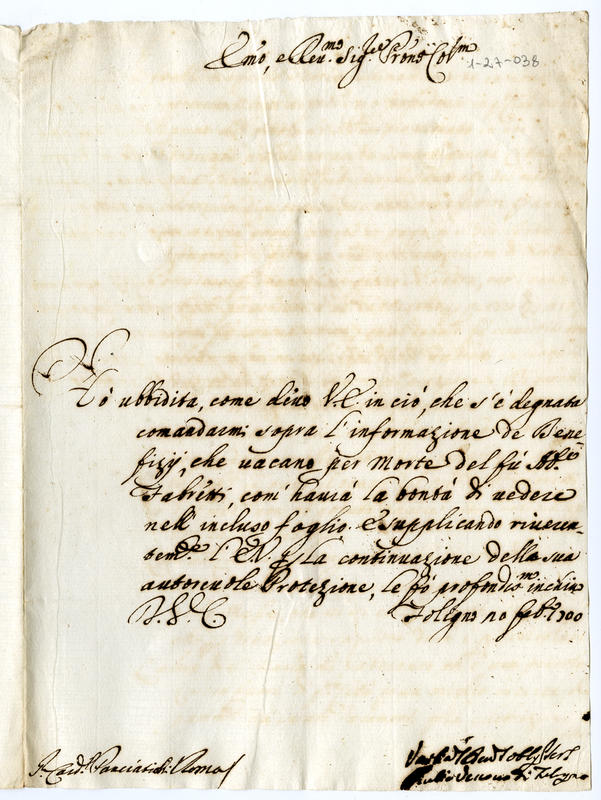 Emo, e Reu.mo Sig.re Prone Col.mo
1-27-038
Hò ubbidita, come deuo V.E in ciò, che s'è degnata
comandarmi sopra l'informazione de Bene-
fizij, che uacano per Morte del fù Ab.e
com' hauerà la bontà di uedere
nell' incluso foglio. E supplicando riueren-
tem.te l'E.V. p la continuazione della sua
autoreuole Protezione, le fò profondis.mo inchino
D. V. E Foligno feb.o 1700
S.r Card.l Panciatichi Roma
Vescouo di Foligno